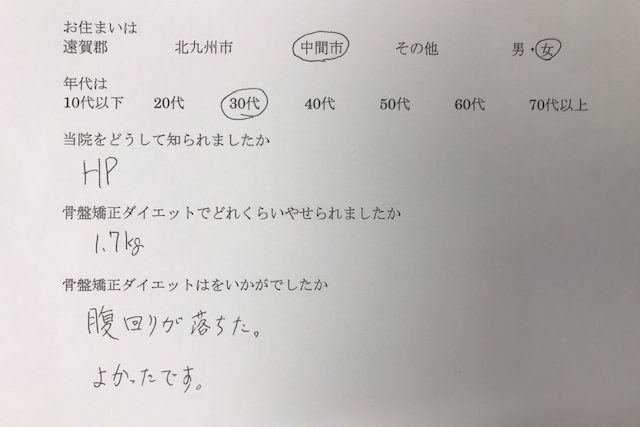 お住まいは
遠賀郡 北九州市 中間市 その他 男・女
年代は
10代以下 20代 30代 40代 50代 60代 70代以上
当院をどうして知られましたか
HP
骨盤矯正ダイエットでどれくらいやせられましたか
1.7kg
骨盤矯正ダイエットはをいかがでしたか
腹回りが落ちた。
よかったです。